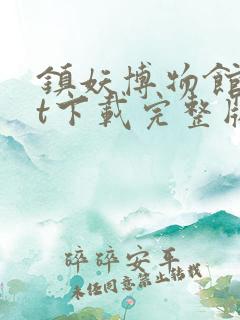 鎮妖博物館
t下載完整版
碎碎安平
未任同意禁止转载